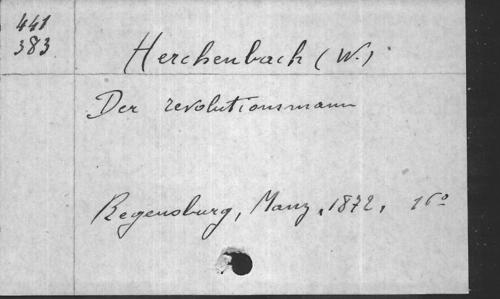 441
383
Herchenbach (W.)
Der revolutionsmann
Regensburg, Manz, 1872, 16º